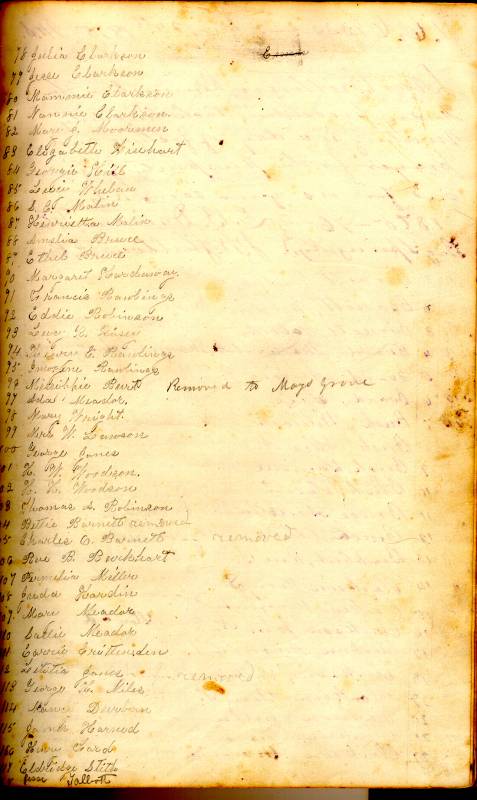 78 Julia Clarkson
79 Jesse Clarkson
80 Mammie Clarkson
81 Nannie Clarkson.
82 Mary J. Moormen
83 Elizabeth Winehart
84 Georgie Hill
85 Lexie Whelan
86 S. E. Malin
87 Henrietta Malin
88 Amelia Bruce
89 Ethel Bruce
90 Margaret Hardaway
91 Francis Rawlings
92 Eddie Robinson
93 Lucy K. Kasey
94 E. Rawlings
95 Imogene Rawlings
96 Burt Removed to Mays Grove
97 Ada Meador.
98 Mary Wright.
99 W. Lawson
100 George Jones
101 H. W. Woodson.
102 H. H. Woodson
103 Thomas L. Robinson
104 Bettie Barnett removed
105 Charles C. Barnett removed
106 Roe B. Burkheart
107 Permelia Miller
108 Judd Hardin
109 Mary Meador
110 Sallie Meador
111 Carrie Crittenden
112 Letitia Jones removed
113 George H. Miles
114 Durban
115 James Harned
116 Henry Card
117 Eldridge Stith
Jesse Talbott